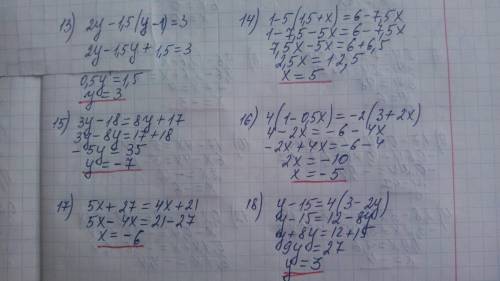 13) 2y - 1,5(y-1) = 3
2y - 1,5y + 1,5 = 3
0,5y = 1,5
y = 3
14) 1-5(1,5+x) = 6-7,5x
1-7,5-5x = 6-7,5x
7,5x-5x = 6+6,5
2,5x = 12,5
x = 5
15) 3y-18 = 8y+17
3y-8y = 17+18
-5y = 35
y = -7
16) 4(1-0,5x) = -2(3+2x)
4-2x = -6-4x
-2x+4x = -6-4
2x = -10
x = -5
17) 5x+27 = 4x+21
5x-4x = 21-27
x = -6
18) y-15 = 4(3-2y)
y-15 = 12-8y
y+8y = 12+15
9y = 27
y = 3